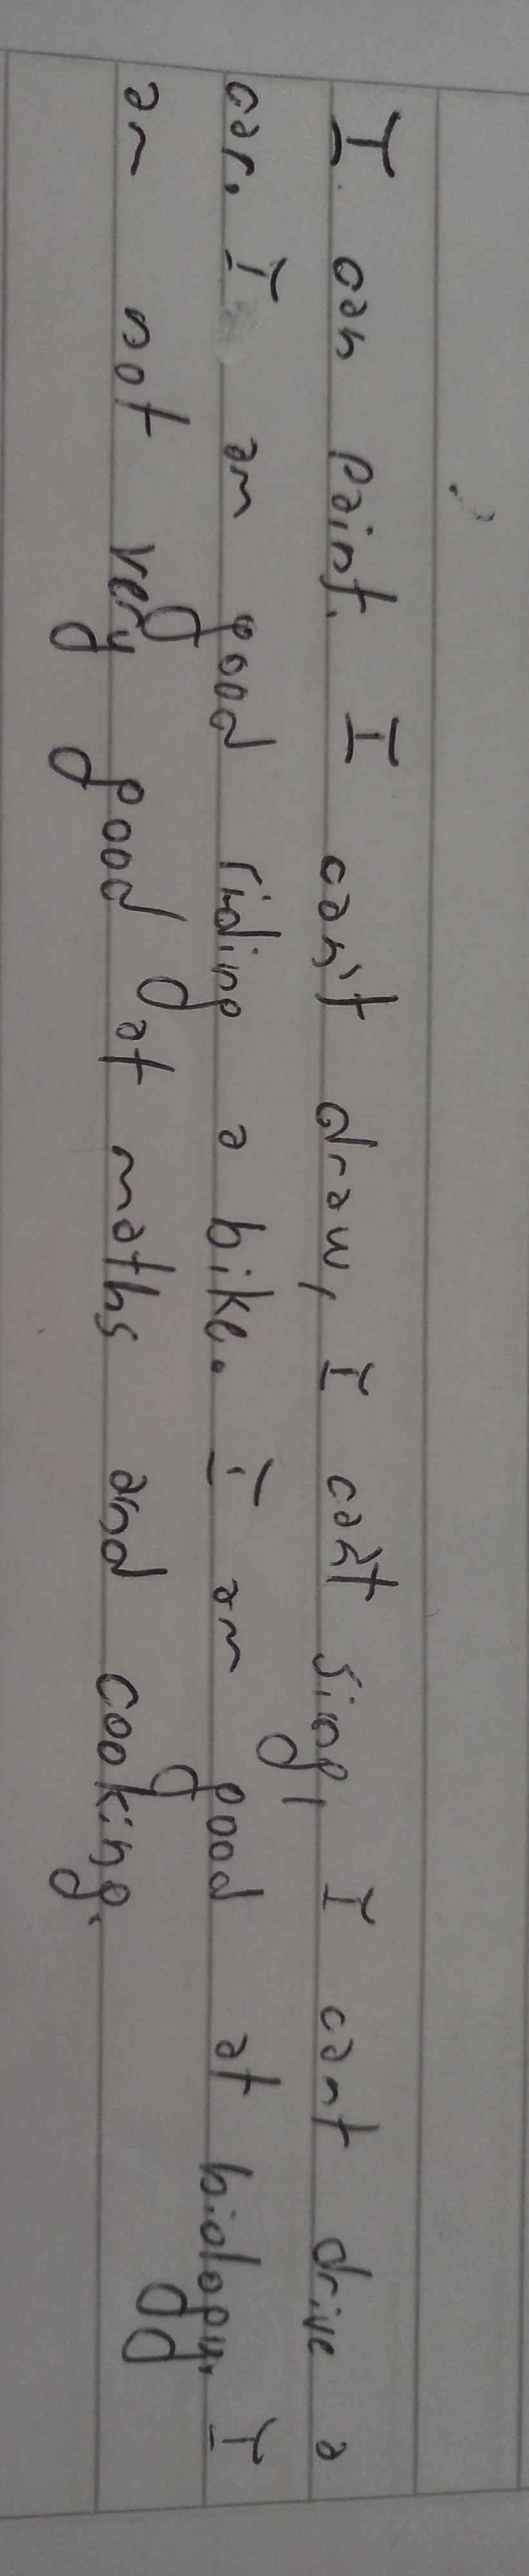 I can paint. I can't draw, I can't sing, I cant drive a
car. I am good riding a bike. I am good at biology. I
am not very good at maths and cooking.